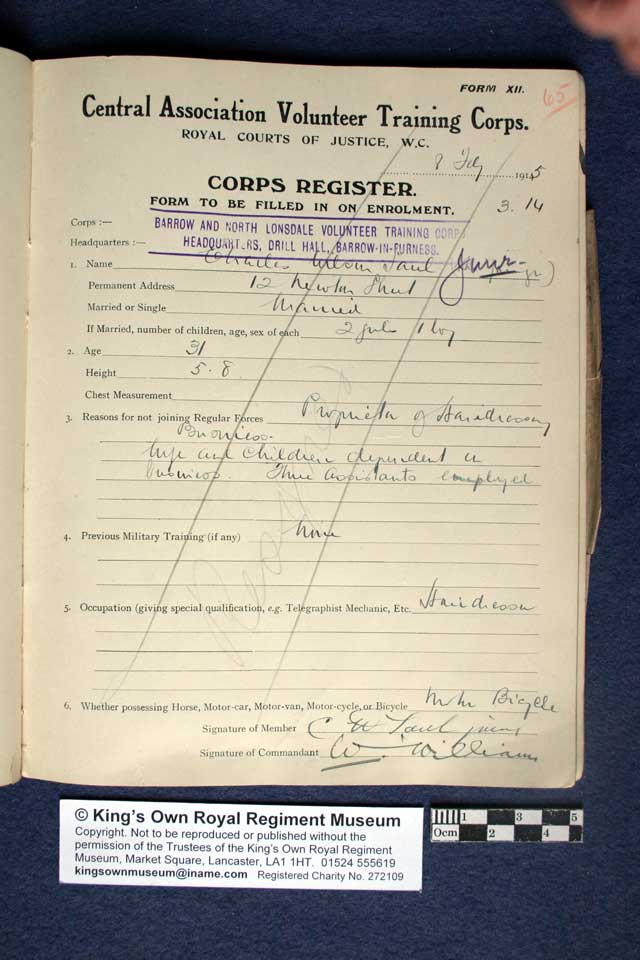 FORM XII.
65
Central Association Volunteer Training Corps.
ROYAL COURTS OF JUSTICE, W.C.
8 Fdy 1915
CORPS REGISTER.
FORM TO BE FILLED IN ON ENROLMENT.
3.14
Corps :—
BARROW AND NORTH LONSDALE VOLUNTEER TRAINING CORPS
Headquarters :—
HEADQUARTERS, DRILL HALL, BARROW-IN-FURNESS.
1. Name Charles Wilson Saul Junr
Permanent Address 12 Newton Street
Married or Single Married
If Married, number of children, age, sex of each 2 girls 1 boy
2. Age 31
Height 5.8
Chest Measurement
3. Reasons for not joining Regular Forces Proprietor of Hairdressing
Business.
Wife and Children dependent on
business. Three Assistants employed
4. Previous Military Training (if any) None
Resigned
5. Occupation (giving special qualification, e.g. Telegraphist Mechanic, Etc. Hairdresser
6. Whether possessing Horse, Motor-car, Motor-van, Motor-cycle, or Bicycle Motor Bicycle
Signature of Member C W Saul junr
Signature of Commandant W. Williams
© King's Own Royal Regiment Museum
Copyright. Not to be reproduced or published without the
permission of the Trustees of the King's Own Royal Regiment
Museum, Market Square, Lancaster, LA1 1HT. 01524 555619
kingsownmuseum@iname.com Registered Charity No. 272109
1 3 5
0cm 2 4